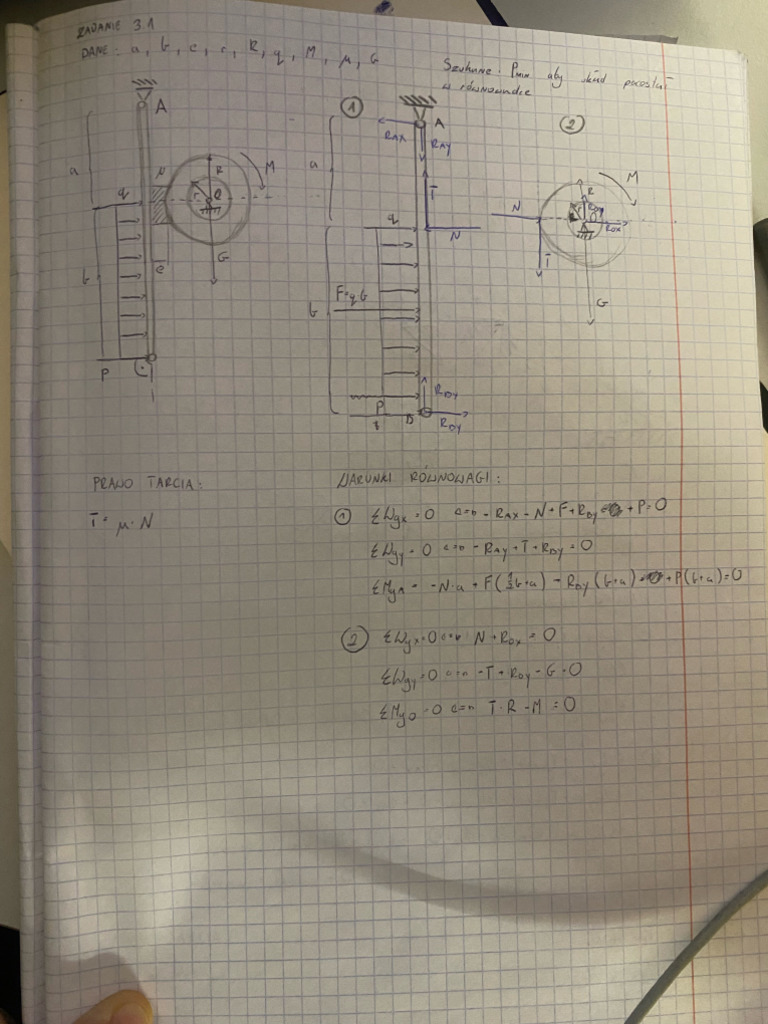 ZADANIE 3.1
DANE: a, b, c, r, R, q, M, μ, G
Szukane: Pmin aby układ pozostał
w równowadze
A
a
μ
R
M
q
r
O
G
b
c
P
1
A
RAX
RAY
a
T
q
N
F=qb
b
RBY
P
B
RBY
2
M
N
R
r
ROY
ROX
T
G
PRAWO TARCIA:
T = μ · N
WARUNKI RÓWNOWAGI:
1 ΣWgx = 0 <=> - RAX - N + F + RBY + P = 0
ΣWgy = 0 <=> - RAY + T + RBY = 0
ΣMgA = -N·a + F(½b+a) - RBY(b+a) + P(b+a) = 0
2 ΣWgx = 0 <=> N + ROX = 0
ΣWgy = 0 <=> -T + ROY - G = 0
ΣMgO = 0 <=> T·R - M = 0